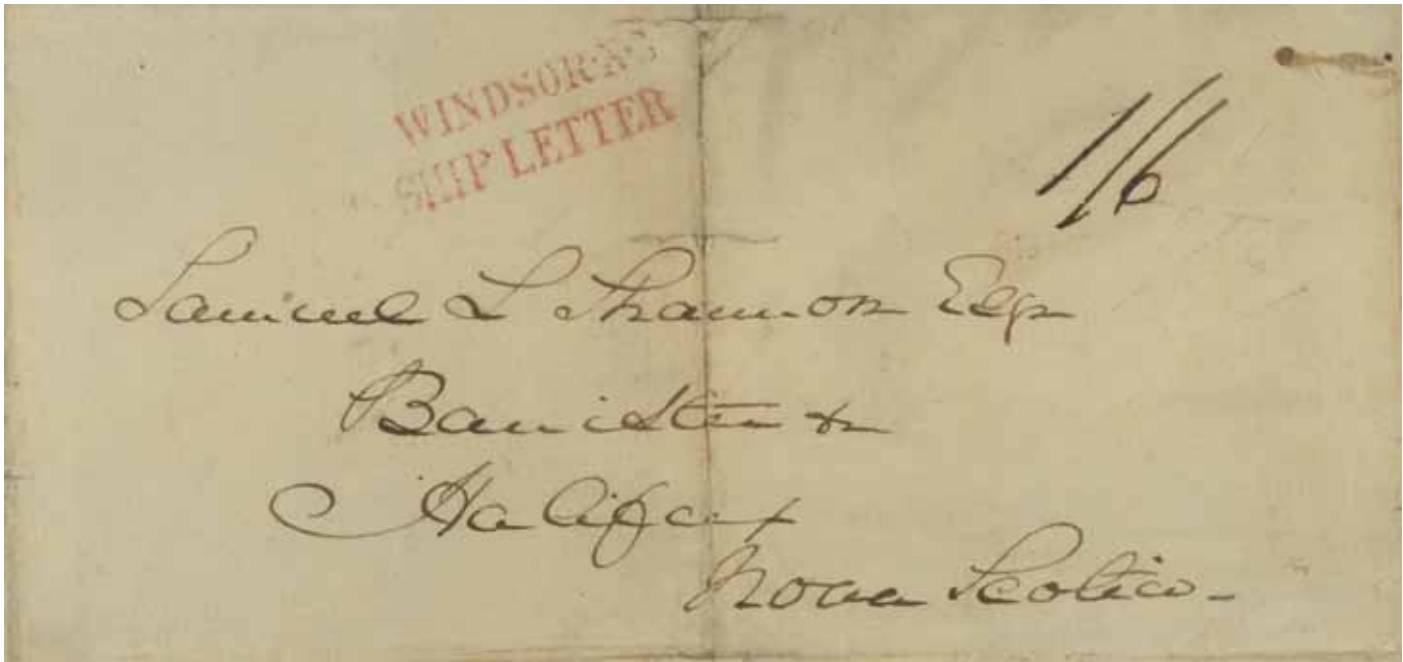 WINDSOR·N·S
SHIP LETTER
1/6
Samuel L Shannon Esqr
Barrister &c
Halifax
Nova Scotia-